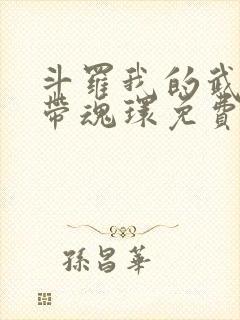 斗羅我的武
帶魂環免費
孫昌華